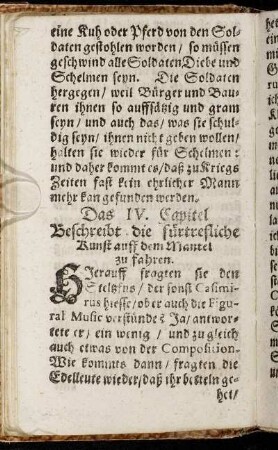 eine Kuh oder Pferd von den Sol-
daten gestohlen worden / so müssen
geschwind alle Soldaten Diebe und
Schelmen seyn. Die Soldaten
hergegen / weil Bürger und Bau-
ren ihnen so auffsätzig und gram
seyn / und auch das / was sie schul-
dig seyn / ihnen nicht geben wollen /
halten sie wieder für Schelmen:
und daher kommt es / daß zu Kriegs
Zeiten fast kein ehrlicher Mann
mehr kan gefunden werden.
Das IV. Capitel
Beschreibt die fürtresliche
Kunst auff dem Mantel
zu fahren.
Hierauff fragten sie den
der sonst Casimi-
rus hiesse / ob er auch die Figu-
ral Music verstünde? Ja / antwor-
tete er / ein wenig / und zugleich
auch etwas von der Composition.
Wie kommts dann / fragten die
Edelleute wieder / daß ihr betteln ge-
het /